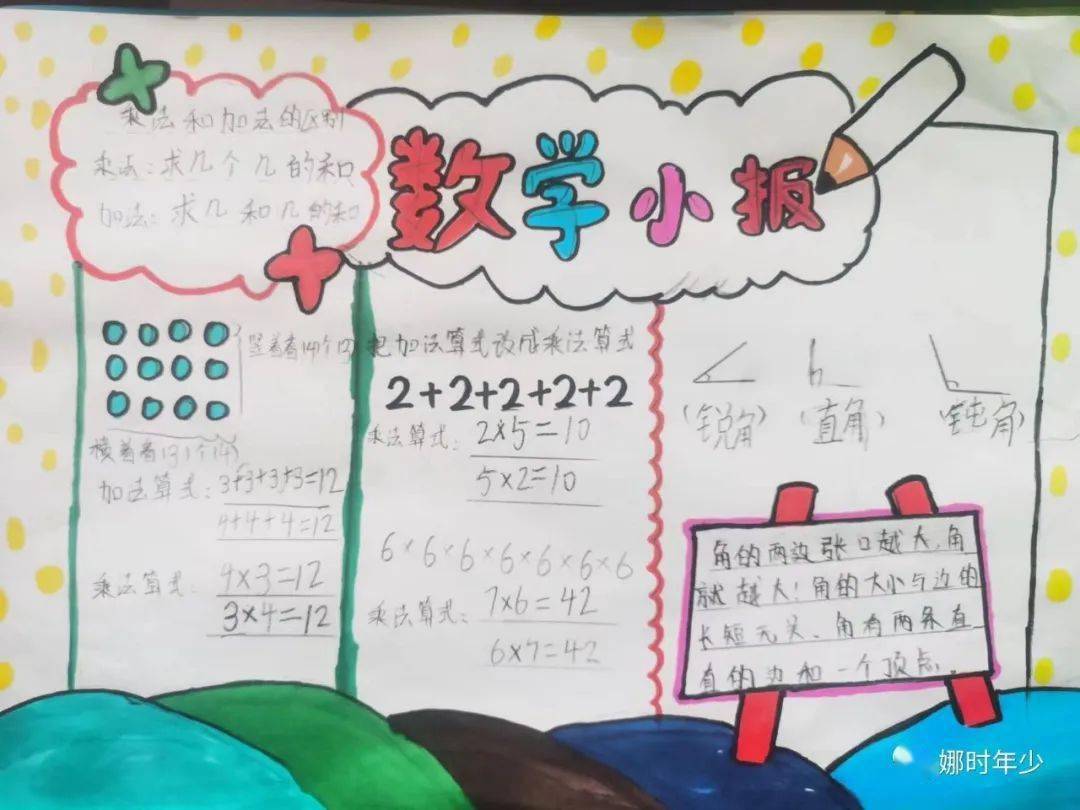 乘法和加法的区别
乘法：求几个几的积
加法：求几和几的和
数学小报
竖着看
横着看
加法算式：3+3+3+3=12
4+4+4=12
乘法算式：4×3=12
3×4=12
把加法算式改成乘法算式
2+2+2+2+2
乘法算式：2×5=10
5×2=10
6×6×6×6×6×6×6
乘法算式：7×6=42
6×7=42
（锐角）（直角）（钝角）
角的两边张口越大，角
就越大！角的大小与边的
长短无关、角有两条直
直的边和一个顶点。
娜时年少